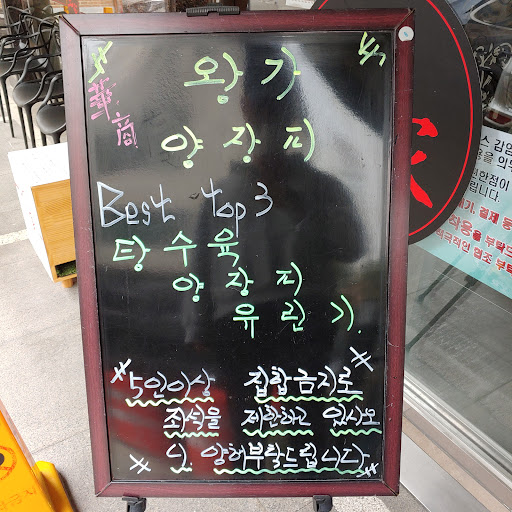 왕가
華商
양장피
Best top3
탕수육
양장피
유린기.
5인이상 집합금지로
좌석을 제한하고 있사오
니. 양해부탁드립니다
家
스 감염
을 의무
인한점이
립니다.
기, 결제 등
착용을 부탁드
적극적인 협조 부탁